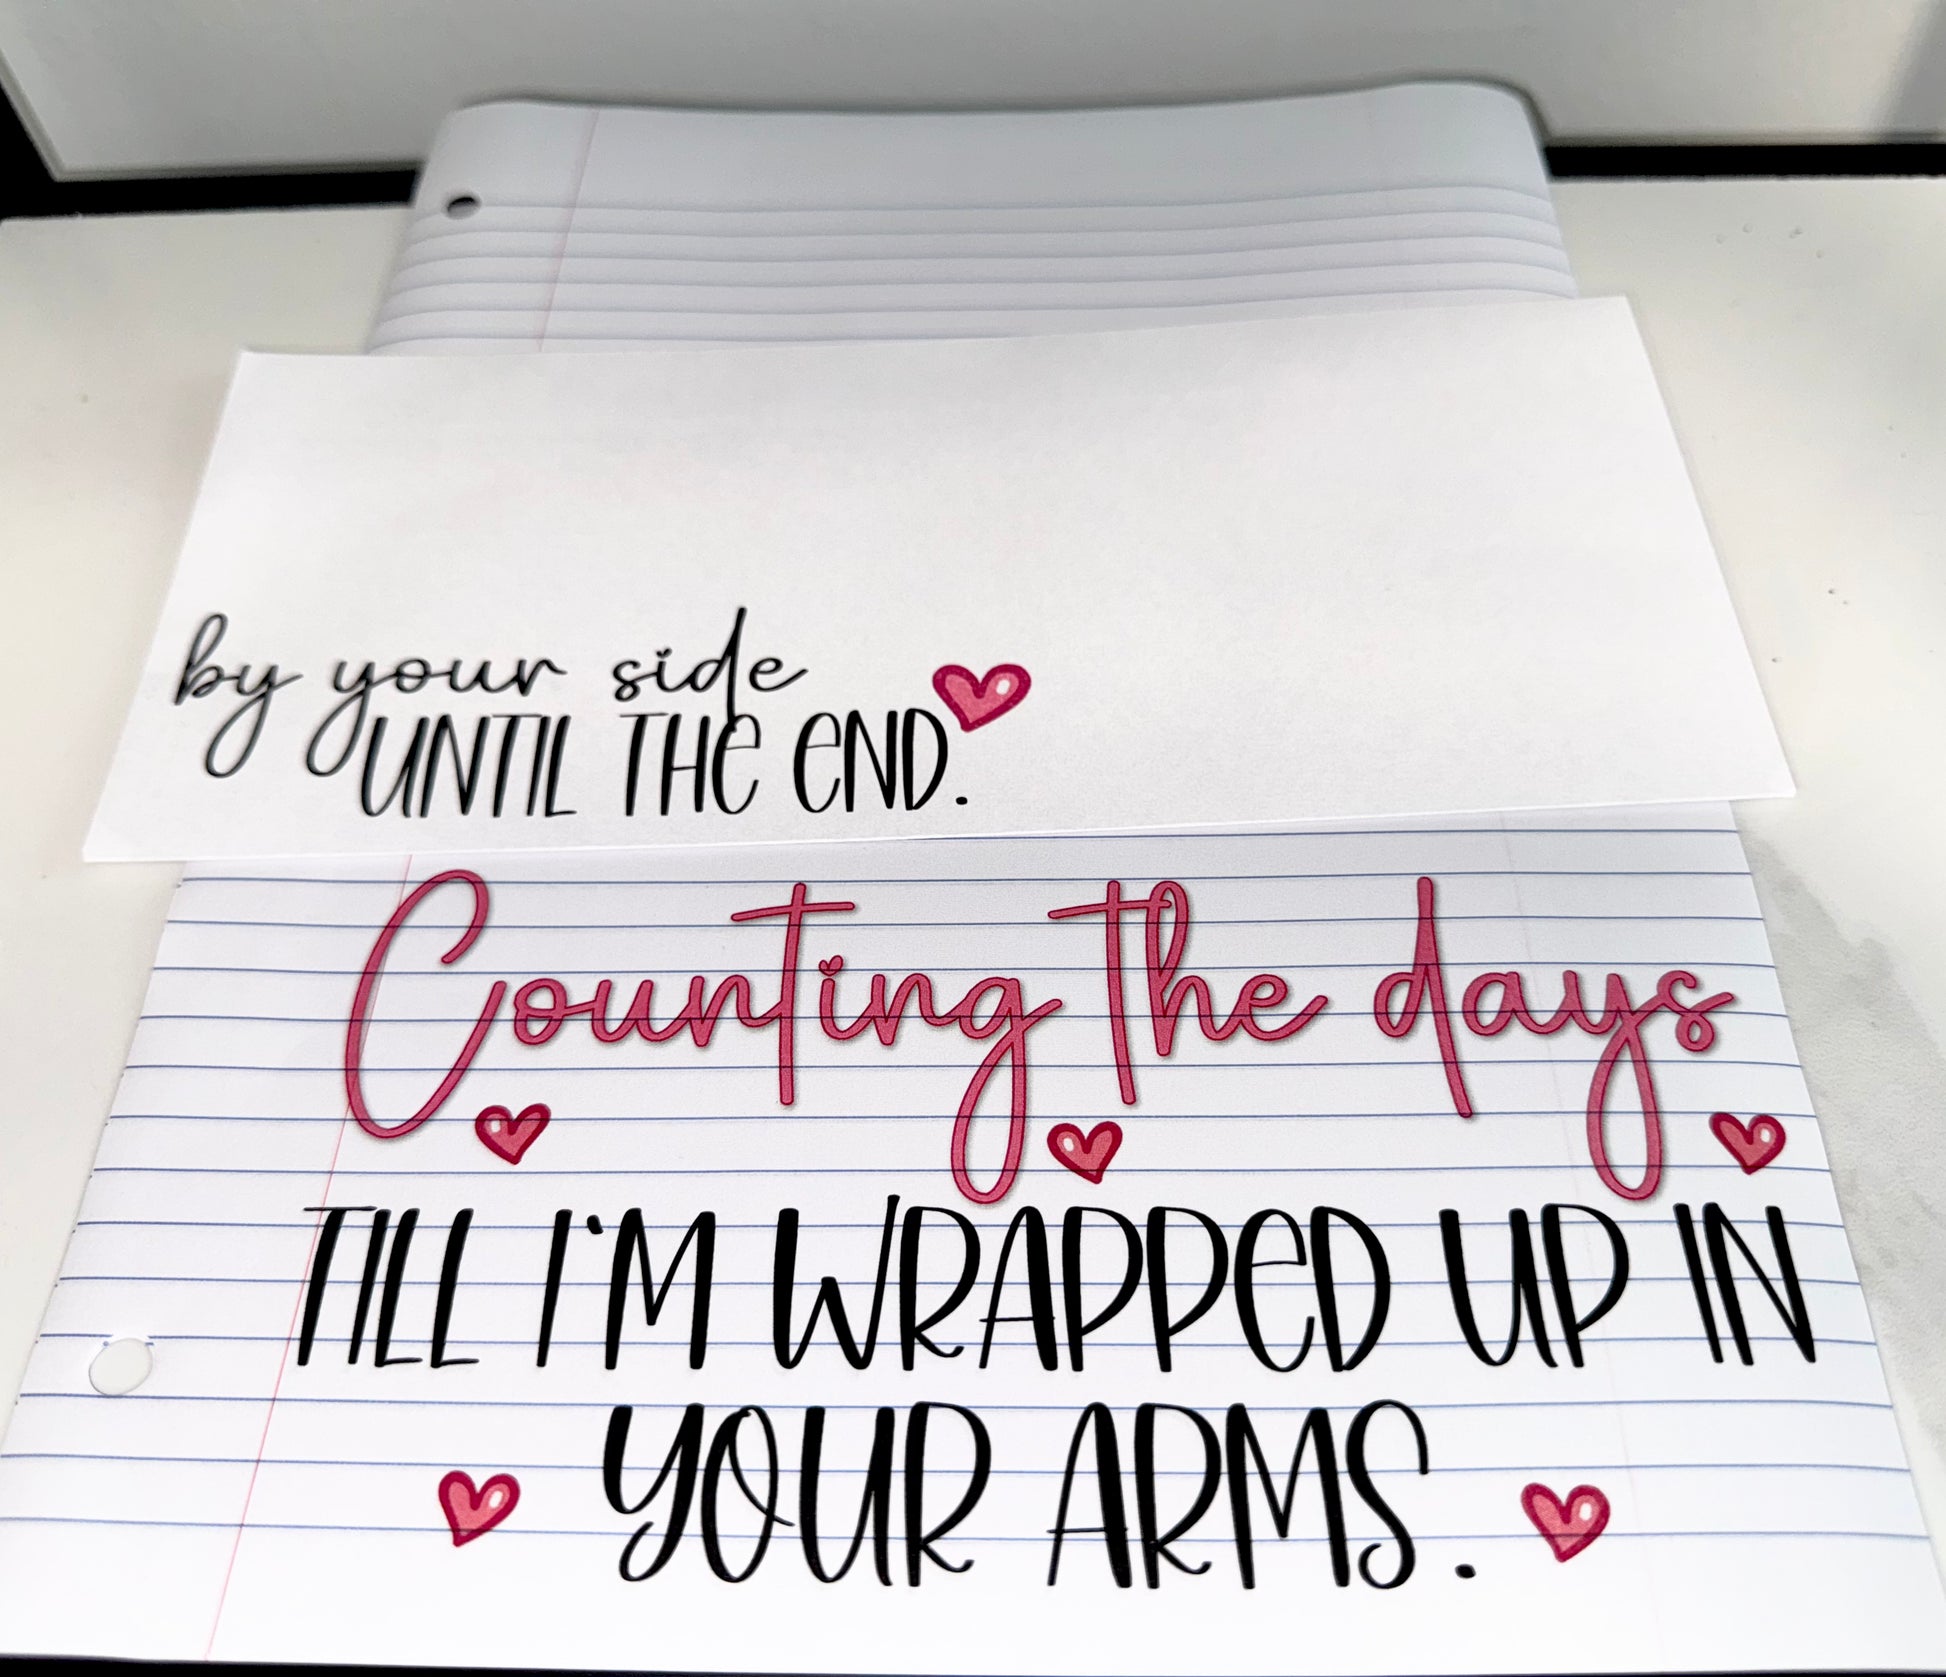 by your side
UNTIL THE END.
Counting the days
TILL I'M WRAPPED UP IN
YOUR ARMS.